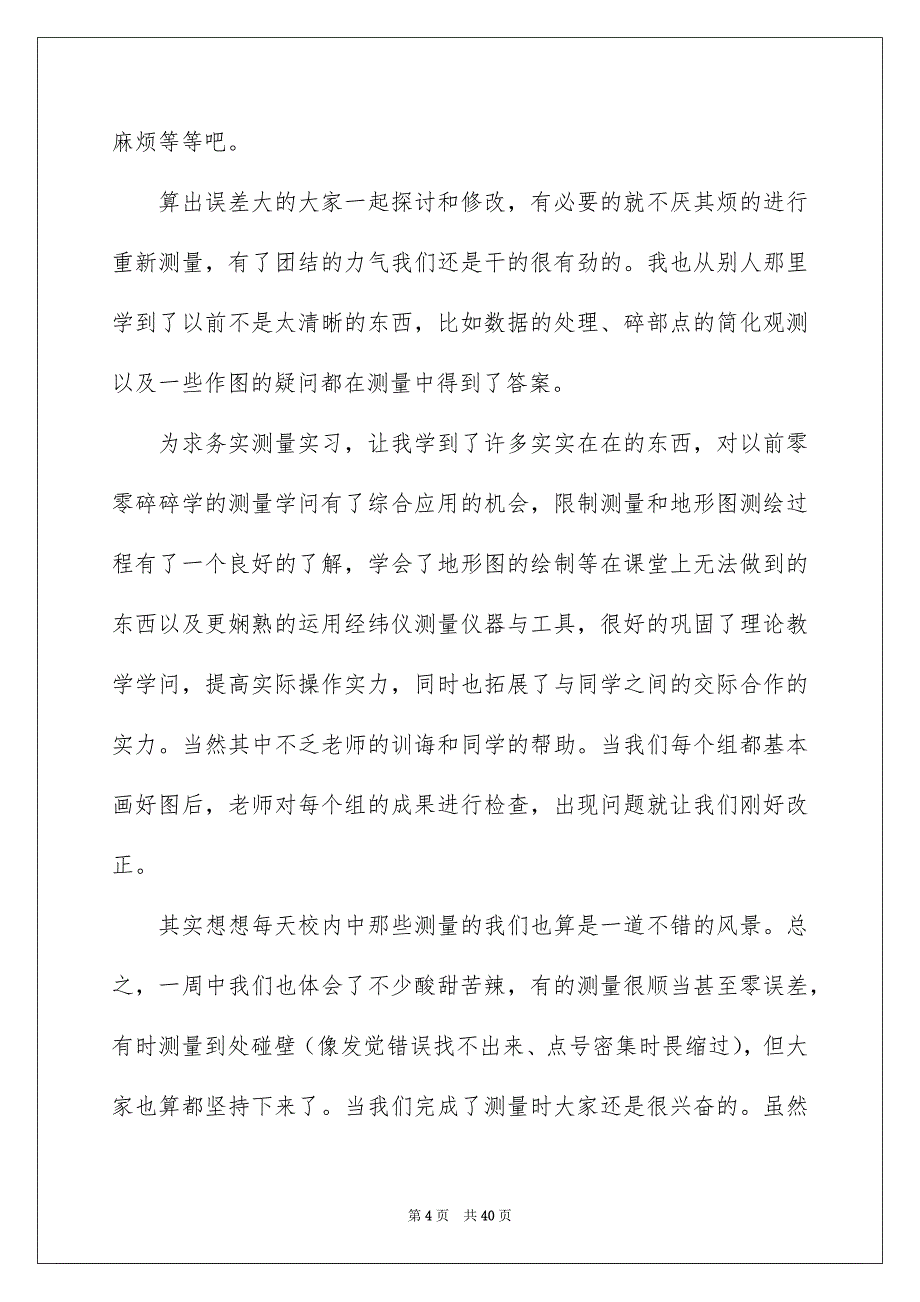 麻烦等等吧。
算出误差大的大家一起探讨和修改，有必要的就不厌其烦的进行
重新测量，有了团结的力气我们还是干的很有劲的。我也从别人那里
学到了以前不是太清晰的东西，比如数据的处理、碎部点的简化观测
以及一些作图的疑问都在测量中得到了答案。
为求务实测量实习，让我学到了许多实实在在的东西，对以前零
零碎碎学的测量学问有了综合应用的机会，限制测量和地形图测绘过
程有了一个良好的了解，学会了地形图的绘制等在课堂上无法做到的
东西以及更娴熟的运用经纬仪测量仪器与工具，很好的巩固了理论教
学学问，提高实际操作实力，同时也拓展了与同学之间的交际合作的
实力。当然其中不乏老师的训诲和同学的帮助。当我们每个组都基本
画好图后，老师对每个组的成果进行检查，出现问题就让我们刚好改
正。
其实想想每天校内中那些测量的我们也算是一道不错的风景。总
之，一周中我们也体会了不少酸甜苦辣，有的测量很顺当甚至零误差，
有时测量到处碰壁（像发觉错误找不出来、点号密集时畏缩过），但大
家也算都坚持下来了。当我们完成了测量时大家还是很兴奋的。虽然
第 4 页 共 40 页